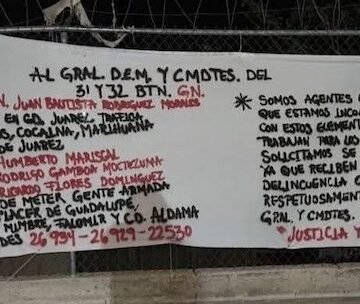 AL GRAL. D.E.M. Y CMDTES. DEL
31 Y 32 BTN. GN.
N. JUAN BAUTISTA RODRIGUEZ MORALES
EN CD. JUAREZ, TRAFICA
COCAINA, MARIHUANA
DE JUAREZ
HUMBERTO MARISCAL
RODRIGO GAMBOA MOCTEZUMA
RICARDO FLORES DOMINGUEZ
DE METER GENTE ARMADA
PLACER DE GUADALUPE,
MIMBRE, FALOMIR Y CD. ALDAMA
DES 26934-26929-22530
* SOMOS AGENTES
QUE ESTAMOS INCO
CON ESTOS ELEMENT
TRABAJAN PARA LOS
SOLICITAMOS SE
YA QUE RECIBEN
DELINCUENCIA O
RESPETUOSAMENT
GRAL. Y CMDTES.
"JUSTICIA Y